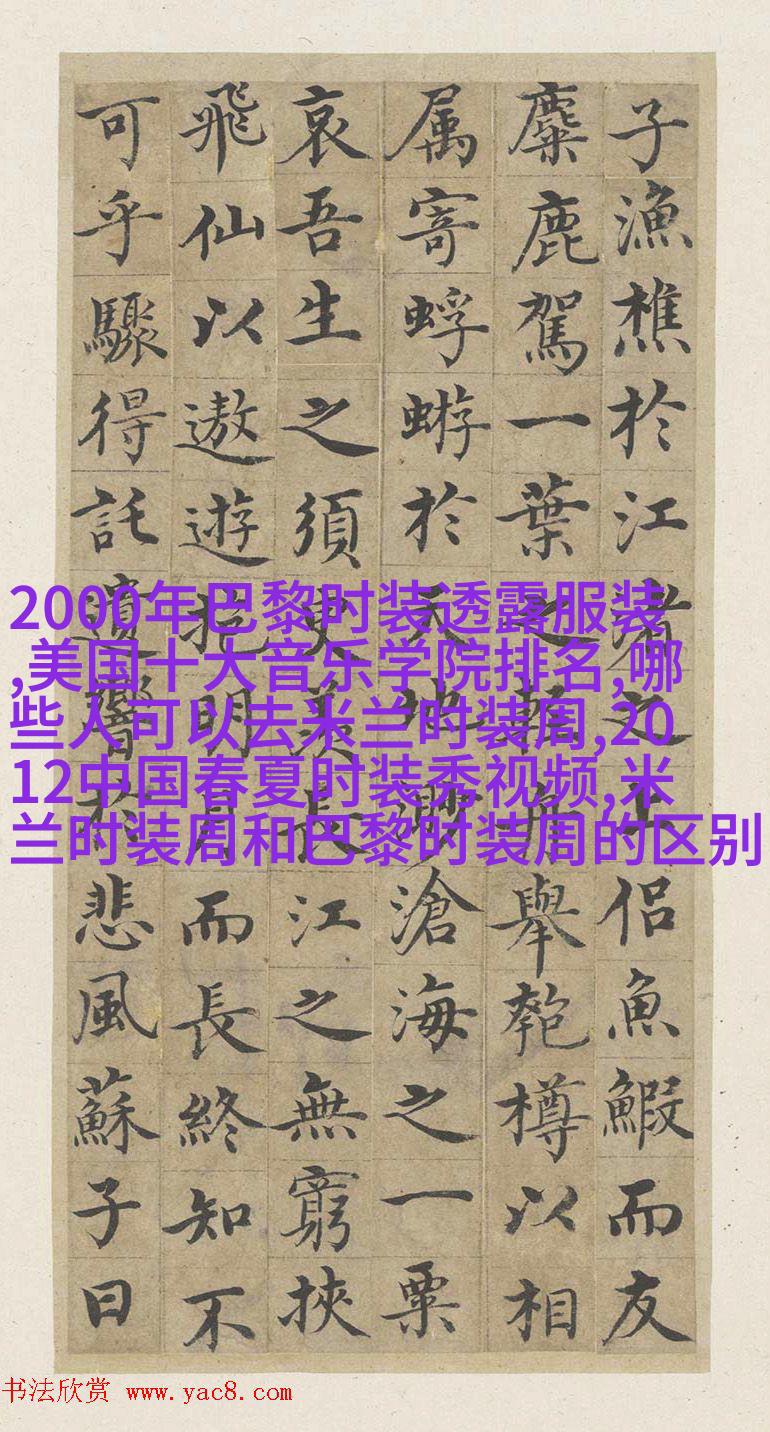 子漁樵於江渚之上侶魚鰕而友
麋鹿駕一葉之輕舟舉匏樽以相
属寄蜉蝣於天地渺滄海之一粟
哀吾生之須臾羨長江之無窮挾
飛仙以遨遊抱明月而長終知不
可乎驟得託遺響於悲風蘇子曰
2000年巴黎时装透露服装
,美国十大音乐学院排名,哪
些人可以去米兰时装周,20
12中国春夏时装秀视频,米
兰时装周和巴黎时装周的区别
书法欣赏 www.yac8.com